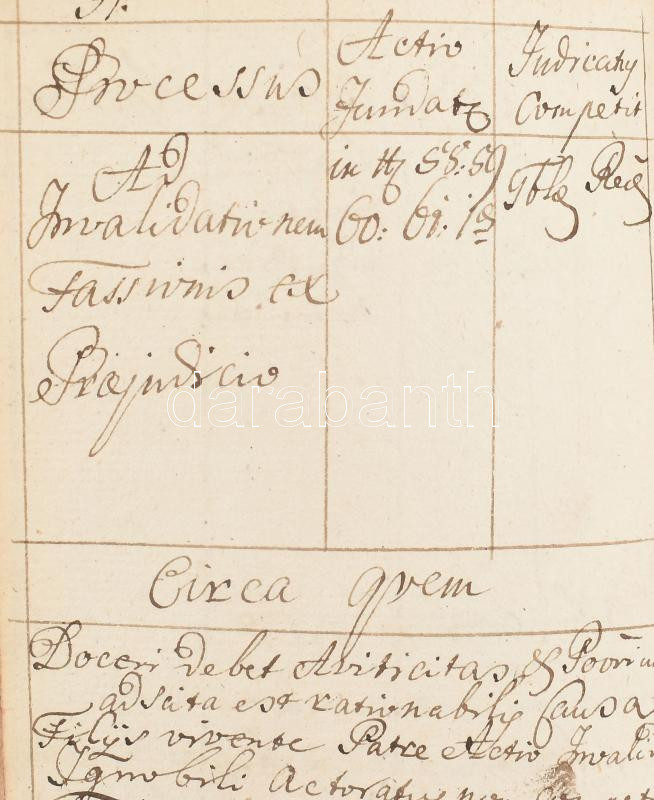 Processus
Actio
Fundatr
Judicatus
Competit
Ad
Invalidationem
Fassionis ex
Præjudicio
in tt 58: 59
60: 61: 1ae
Tblæ Regæ
Circa quem
Doceri debet Aviticitas, &
adscita est rationabilis Causa
Filijs vivente Patre Actio
Ignobili
darabanth